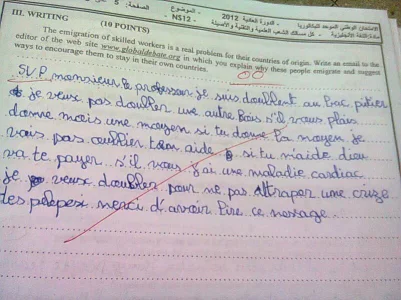 الصفحة: 5
الموضوع - NS12 -
الامتحان الوطني الموحد للبكالوريا - الدورة العادية 2012 -
مادة: اللغة الإنجليزية - كل مسالك الشعب العلمية و التقنية والأصيلة
III. WRITING (10 POINTS)
The emigration of skilled workers is a real problem for their countries of origin. Write an email to the
editor of the web site www.globaldebate.org in which you explain why these people emigrate and suggest
ways to encourage them to stay in their own countries.
00
SVP monsieur le professor je suis doublent au bac
je veux pas doubler une autre fois s'il vous plais
donne mois une moyen si tu donne la moyen je
vais pas oublier ton aide si tu m'aide dieu
va te payer s'il vous j'ai une maladie cardiac
je veux doubler pour ne pas attraper une crize
merci d'avoir lire ce message